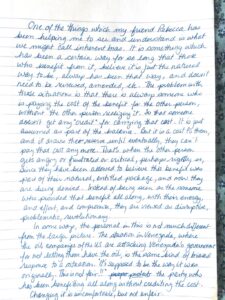 One of the things which my friend Rebecca has
been helping me to see and understand is what
we might call inherent bias. It is something which
has been a certain way for so long that those
who benefit from it, believe it's just the natural
way to be, always has been that way, and doesn't
need to be reviewed, amended, etc. The problem with
these situations is that there is always someone who
is paying the cost of the benefit for the other person,
without the other person realizing it. So that someone
doesn't get any "credit" for carrying that cost. It is just
assumed as part of the balance. But it is a cost to them,
and it drains their reserves until eventually, they can't
pay that cost any more. That's when the other person
gets angry or frustrated or critical, perhaps rightly so,
since they have been allowed to believe that benefit was
part of their natural, entitled package, and now they
are being denied. Instead of being seen as the someone
who provided that benefit all along, with their energy,
and effort, and compassion, they are viewed as disruptive,
problematic, revolutionary.
In some ways, the personal in this is not much different
from the larger picture. The situation in Venezuela, where
the oil companies of the US are attacking Venezuela's government
for not letting them have the oil, is the same kind of biased
response to a situation. "It's supposed to be the way it was
originally. This is not fair!" the party who
has been benefitting all along without crediting the cost.
Changing it is uncomfortable, but not unfair.